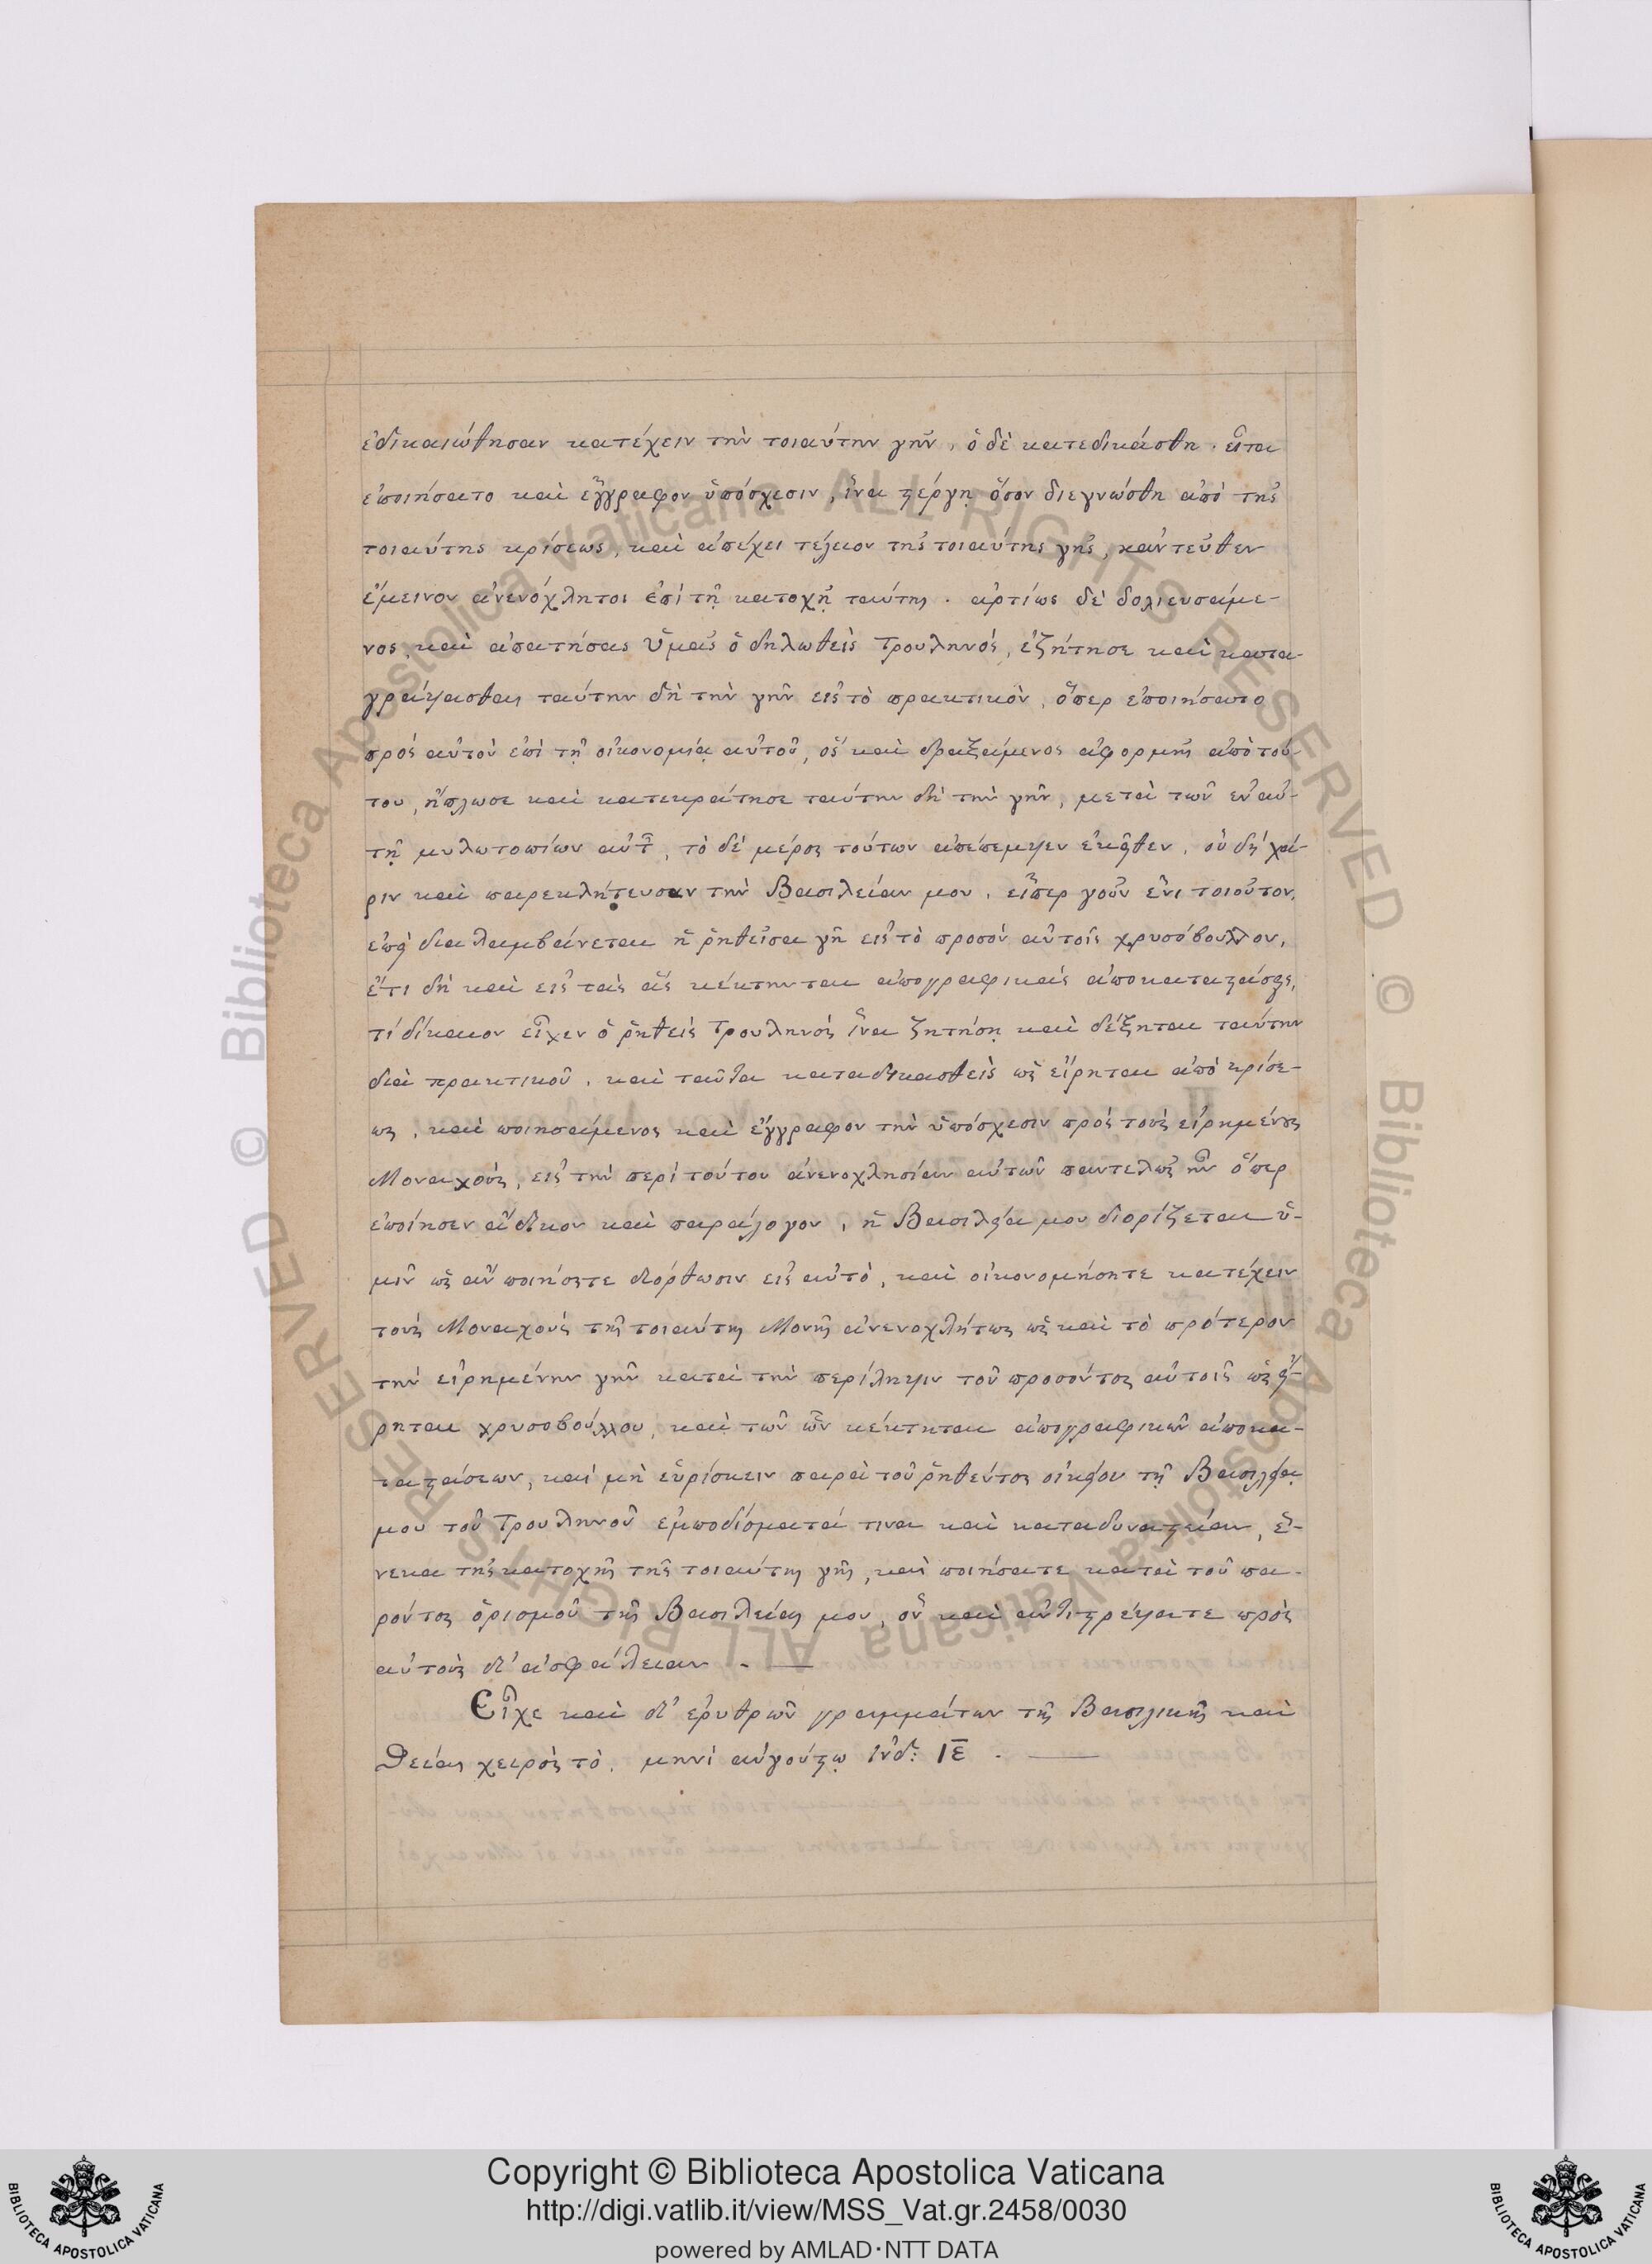 ἐδικαιώθησαν κατέχειν τὴν τοιαύτην γῆν, ὁ δὲ κατεδικάσθη. εἶτα
ἐποιήσατο καὶ ἔγγραφον ὑπόσχεσιν, ἵνα στέργῃ ὅσον διεγνώσθη ἀπὸ τῆς
τοιαύτης κρίσεως, καὶ ἀπέχει τέλειον τῆς τοιαύτης γῆς, κἀντεῦθεν
ἔμεινον ἀνενόχλητοι ἐπὶ τῇ κατοχῇ ταύτης. ἀρτίως δὲ δολιευσάμε-
νος, καὶ ἀπατήσας ὑμᾶς ὁ δηλωθεὶς Τρουληνός, ἐζήτησε καὶ κατα-
γράψασθαι ταύτην δὴ τὴν γῆν εἰς τὸ πρακτικὸν, ὅπερ ἐποιήσατο
πρὸς αὐτὸν ἐπὶ τῇ οἰκονομίᾳ αὐτοῦ, ὃς καὶ δραξάμενος ἀφορμῆς ἀπὸ τού-
του, ἥπλωσε καὶ κατεκράτησε ταύτην δὴ τὴν γῆν, μετὰ τῶν ἐν αὐ-
τῇ μυλωτοπίων αὐτ̑, τὸ δὲ μέρος τούτων ἀπέπεμψεν ἐκεῖθεν. οὗ δὴ χά-
ριν καὶ παρεκλήτευσαν τὴν Βασιλείαν μου. εἴπερ γοῦν ἔνι τοιοῦτον,
ἐπεὶ διαλαμβάνεται ἡ ῥηθεῖσα γῆ εἰς τὸ προσὸν αὐτοῖς χρυσόβουλλον,
ἔτι δὴ καὶ εἰς τὰς ἃς κέκτηνται ἀπογραφικὰς ἀποκαταστάσεις,
τί δίκαιον εἶχεν ὁ ῥηθεὶς Τρουληνός ἵνα ζητήσῃ καὶ δέξηται ταύτην
διὰ πρακτικοῦ. καὶ ταῦτα καταδικασθεὶς ὡς εἴρηται ἀπὸ κρίσε-
ως, καὶ ποιησάμενος καὶ ἔγγραφον τὴν ὑπόσχεσιν πρὸς τοὺς εἰρημένους
Μοναχούς, εἰς τὴν περὶ τούτου ἀνενοχλησίαν αὐτῶν παντελῶς ἦν ὅπερ
ἐποίησεν ἄδικον καὶ παράλογον, ἡ Βασιλεία μου διορίζεται ὑ-
μῖν ὡς ἂν ποιήσητε διόρθωσιν εἰς αὐτὸ, καὶ οἰκονομήσητε κατέχειν
τοὺς Μοναχοὺς τῆς τοιαύτης Μονῆς ἀνενοχλήτως ὡς καὶ τὸ πρότερον
τὴν εἰρημένην γῆν κατὰ τὴν περίληψιν τοῦ προσόντος αὐτοῖς ὡς εἴ-
ρηται χρυσοβούλλου, καὶ τῶν ὧν κέκτηται ἀπογραφικῶν ἀποκα-
ταστάσεων, καὶ μὴ εὑρίσκειν παρὰ τοῦ ῥηθέντος οἰκείου τῇ Βασιλείᾳ
μου τοῦ Τρουληνοῦ ἐμποδίσματά τινα καὶ καταδυναστείαν, ἕ-
νεκα τῆς κατοχῆς τῆς τοιαύτης γῆς, καὶ ποιήσατε κατὰ τοῦ πα-
ρόντος ὁρισμοῦ τῆς Βασιλείας μου, ὃν καὶ ἀντιστρέψατε πρὸς
αὐτοὺς δι' ἀσφάλειαν. —
Εἶχε καὶ δι' ἐρυθρῶν γραμμάτων τῆς Βασιλικῆς καὶ
Θείας χειρὸς τὸ. μηνὶ αὐγούστῳ Ἰνδ: ΙΕ. —
Copyright © Biblioteca Apostolica Vaticana
http://digi.vatlib.it/view/MSS_Vat.gr.2458/0030
powered by AMLAD·NTT DATA
BIBLIOTECA APOSTOLICA VATICANA
BIBLIOTECA APOSTOLICA VATICANA
© Biblioteca Apostolica Vaticana ALL RIGHTS RESERVED
© Biblioteca Apostolica Vaticana ALL RIGHTS RESERVED